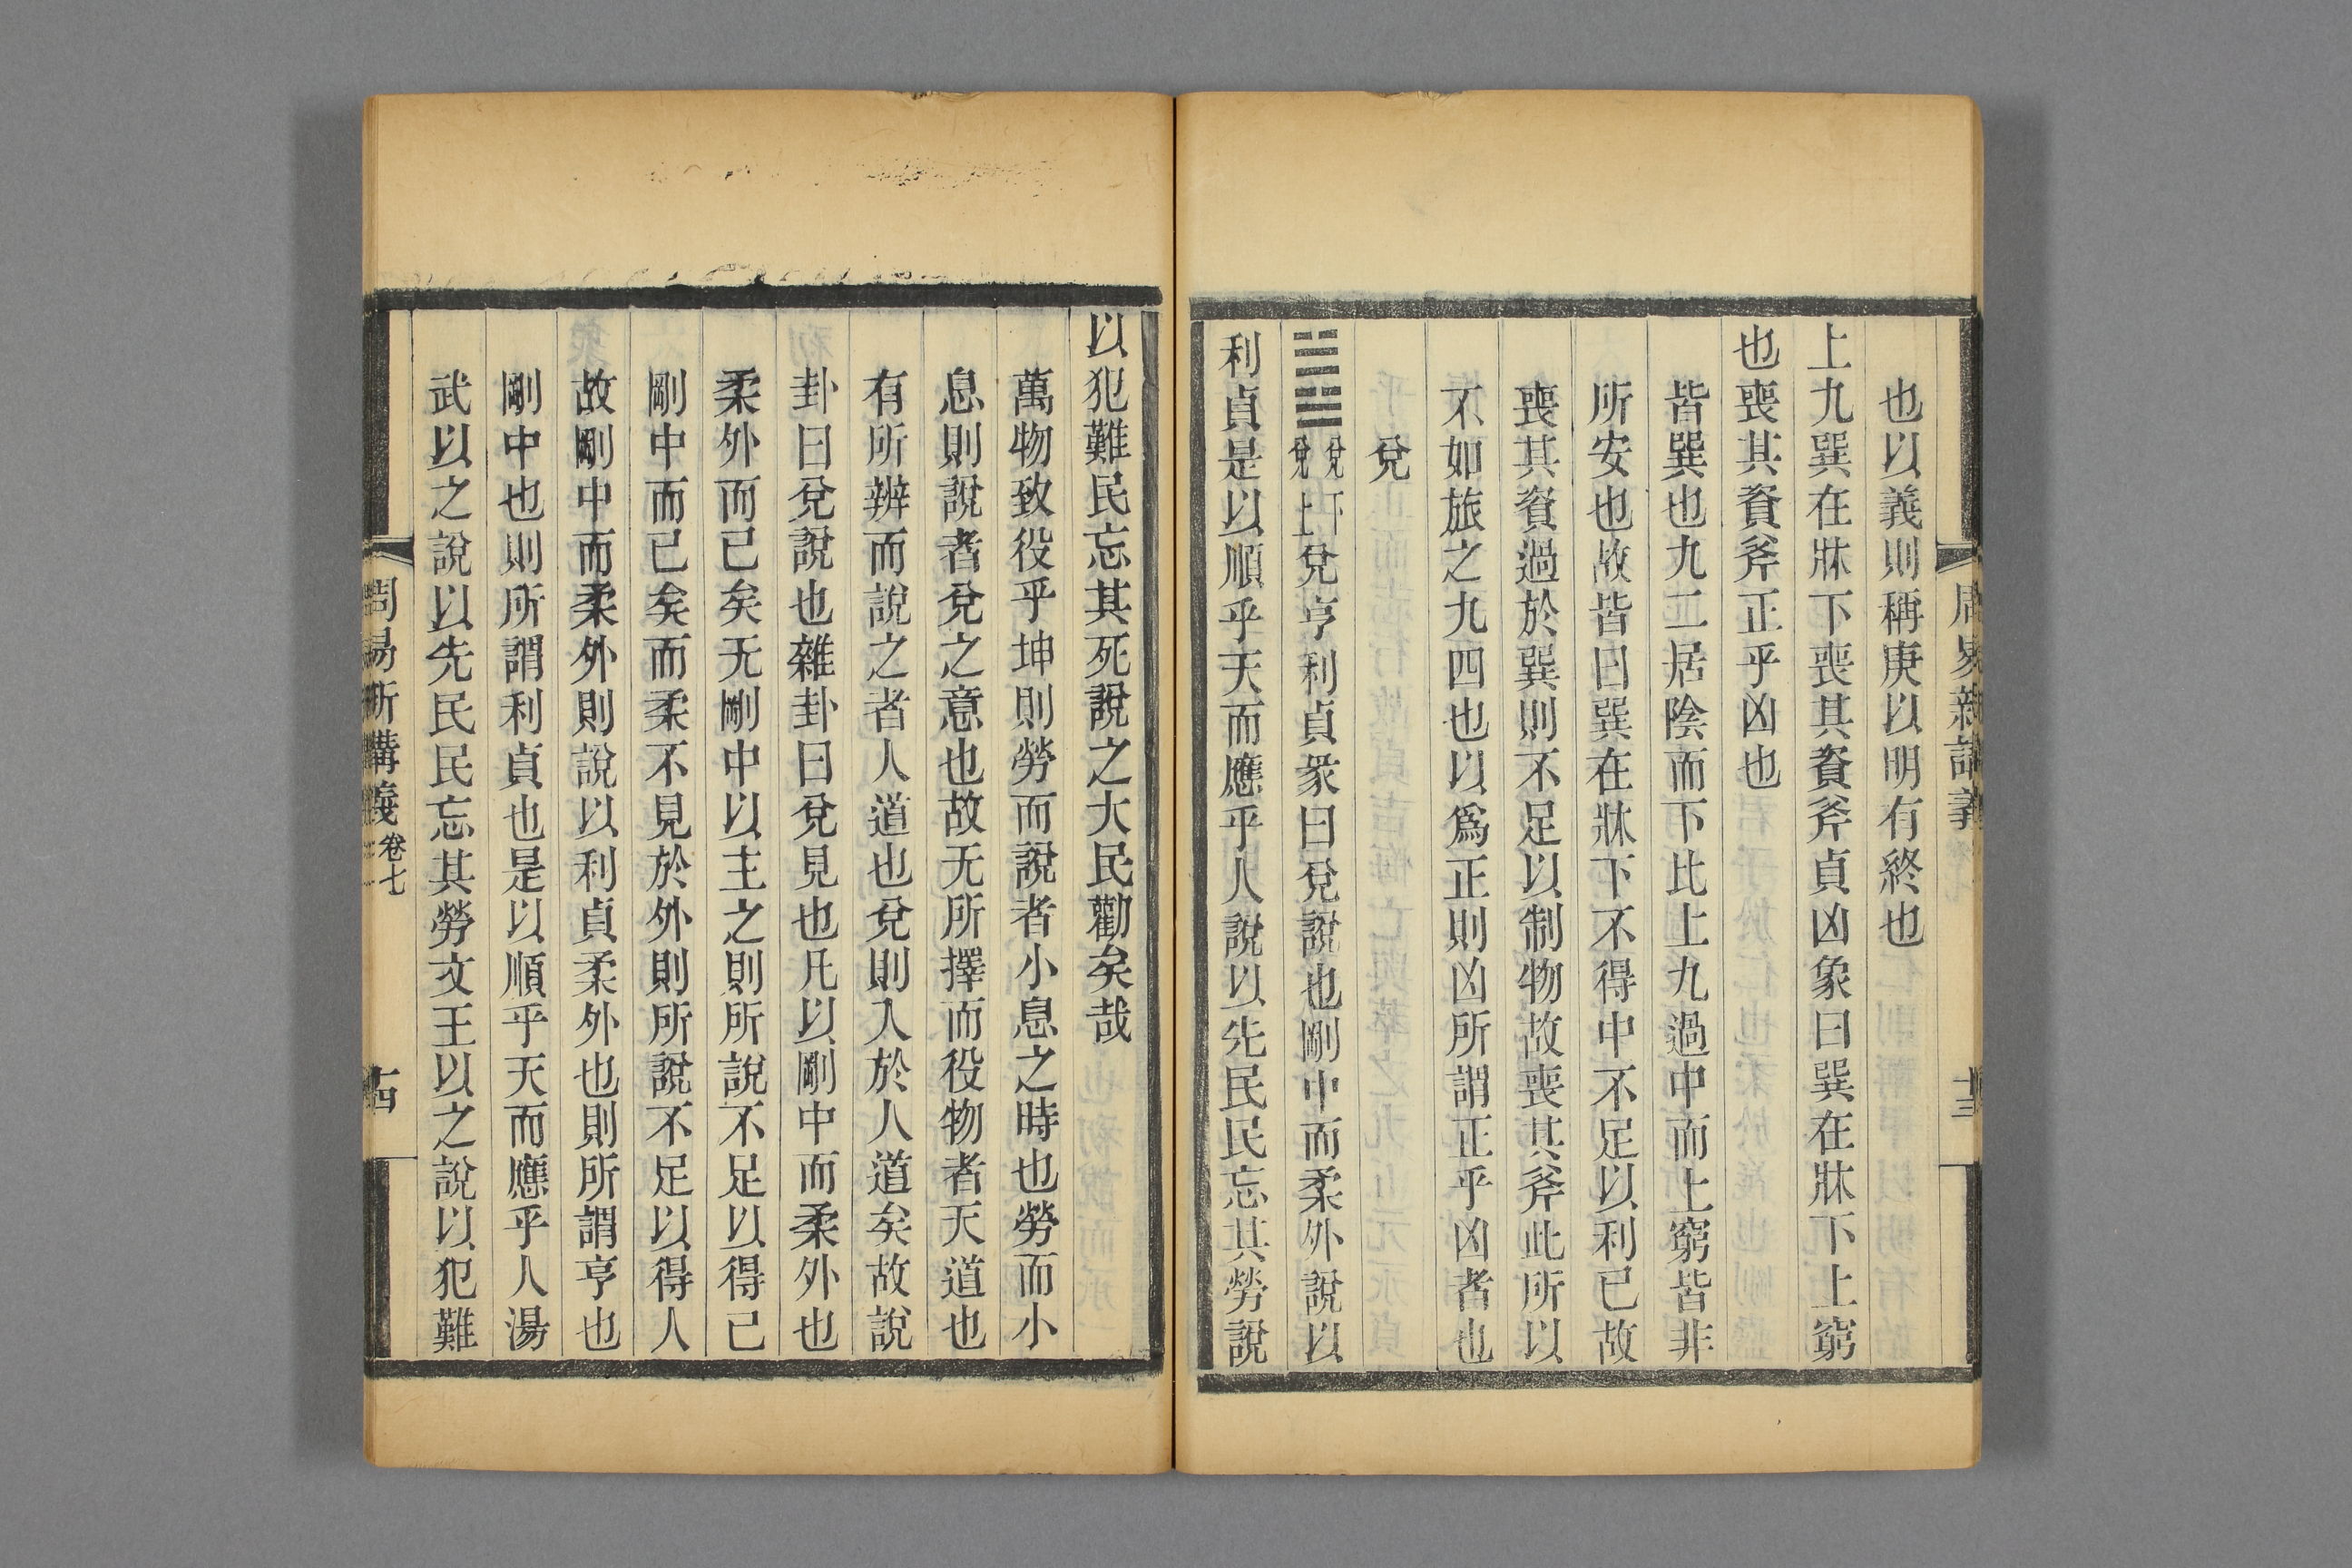 周易新講義
十三
也以義則稱庚以明有終也
上九巽在牀下喪其資斧貞凶象曰巽在牀下上窮
也喪其資斧正乎凶也
皆巽也九二居陰而下比上九過中而上窮皆非
所安也故皆曰巽在牀下不得中不足以利已故
喪其資過於巽則不足以制物故喪其斧此所以
不如旅之九四也以爲正則凶所謂正乎凶者也
兌
䷹兌下兌上兌亨利貞彖曰兌說也剛中而柔外說以
利貞是以順乎天而應乎人說以先民民忘其勞說
以犯難民忘其死說之大民勸矣哉
萬物致役乎坤則勞而說者小息之時也勞而小
息則說者兌之意也故无所擇而役物者天道也
有所辨而說之者人道也兌則入於人道矣故說
卦曰兌說也雜卦曰兌見也凡以剛中而柔外也
柔外而已矣无剛中以主之則所說不足以得己
剛中而已矣而柔不見於外則所說不足以得人
故剛中而柔外則說以利貞柔外也則所謂亨也
剛中也則所謂利貞也是以順乎天而應乎人湯
武以之說以先民民忘其勞文王以之說以犯難
周易新講義 卷七
十四